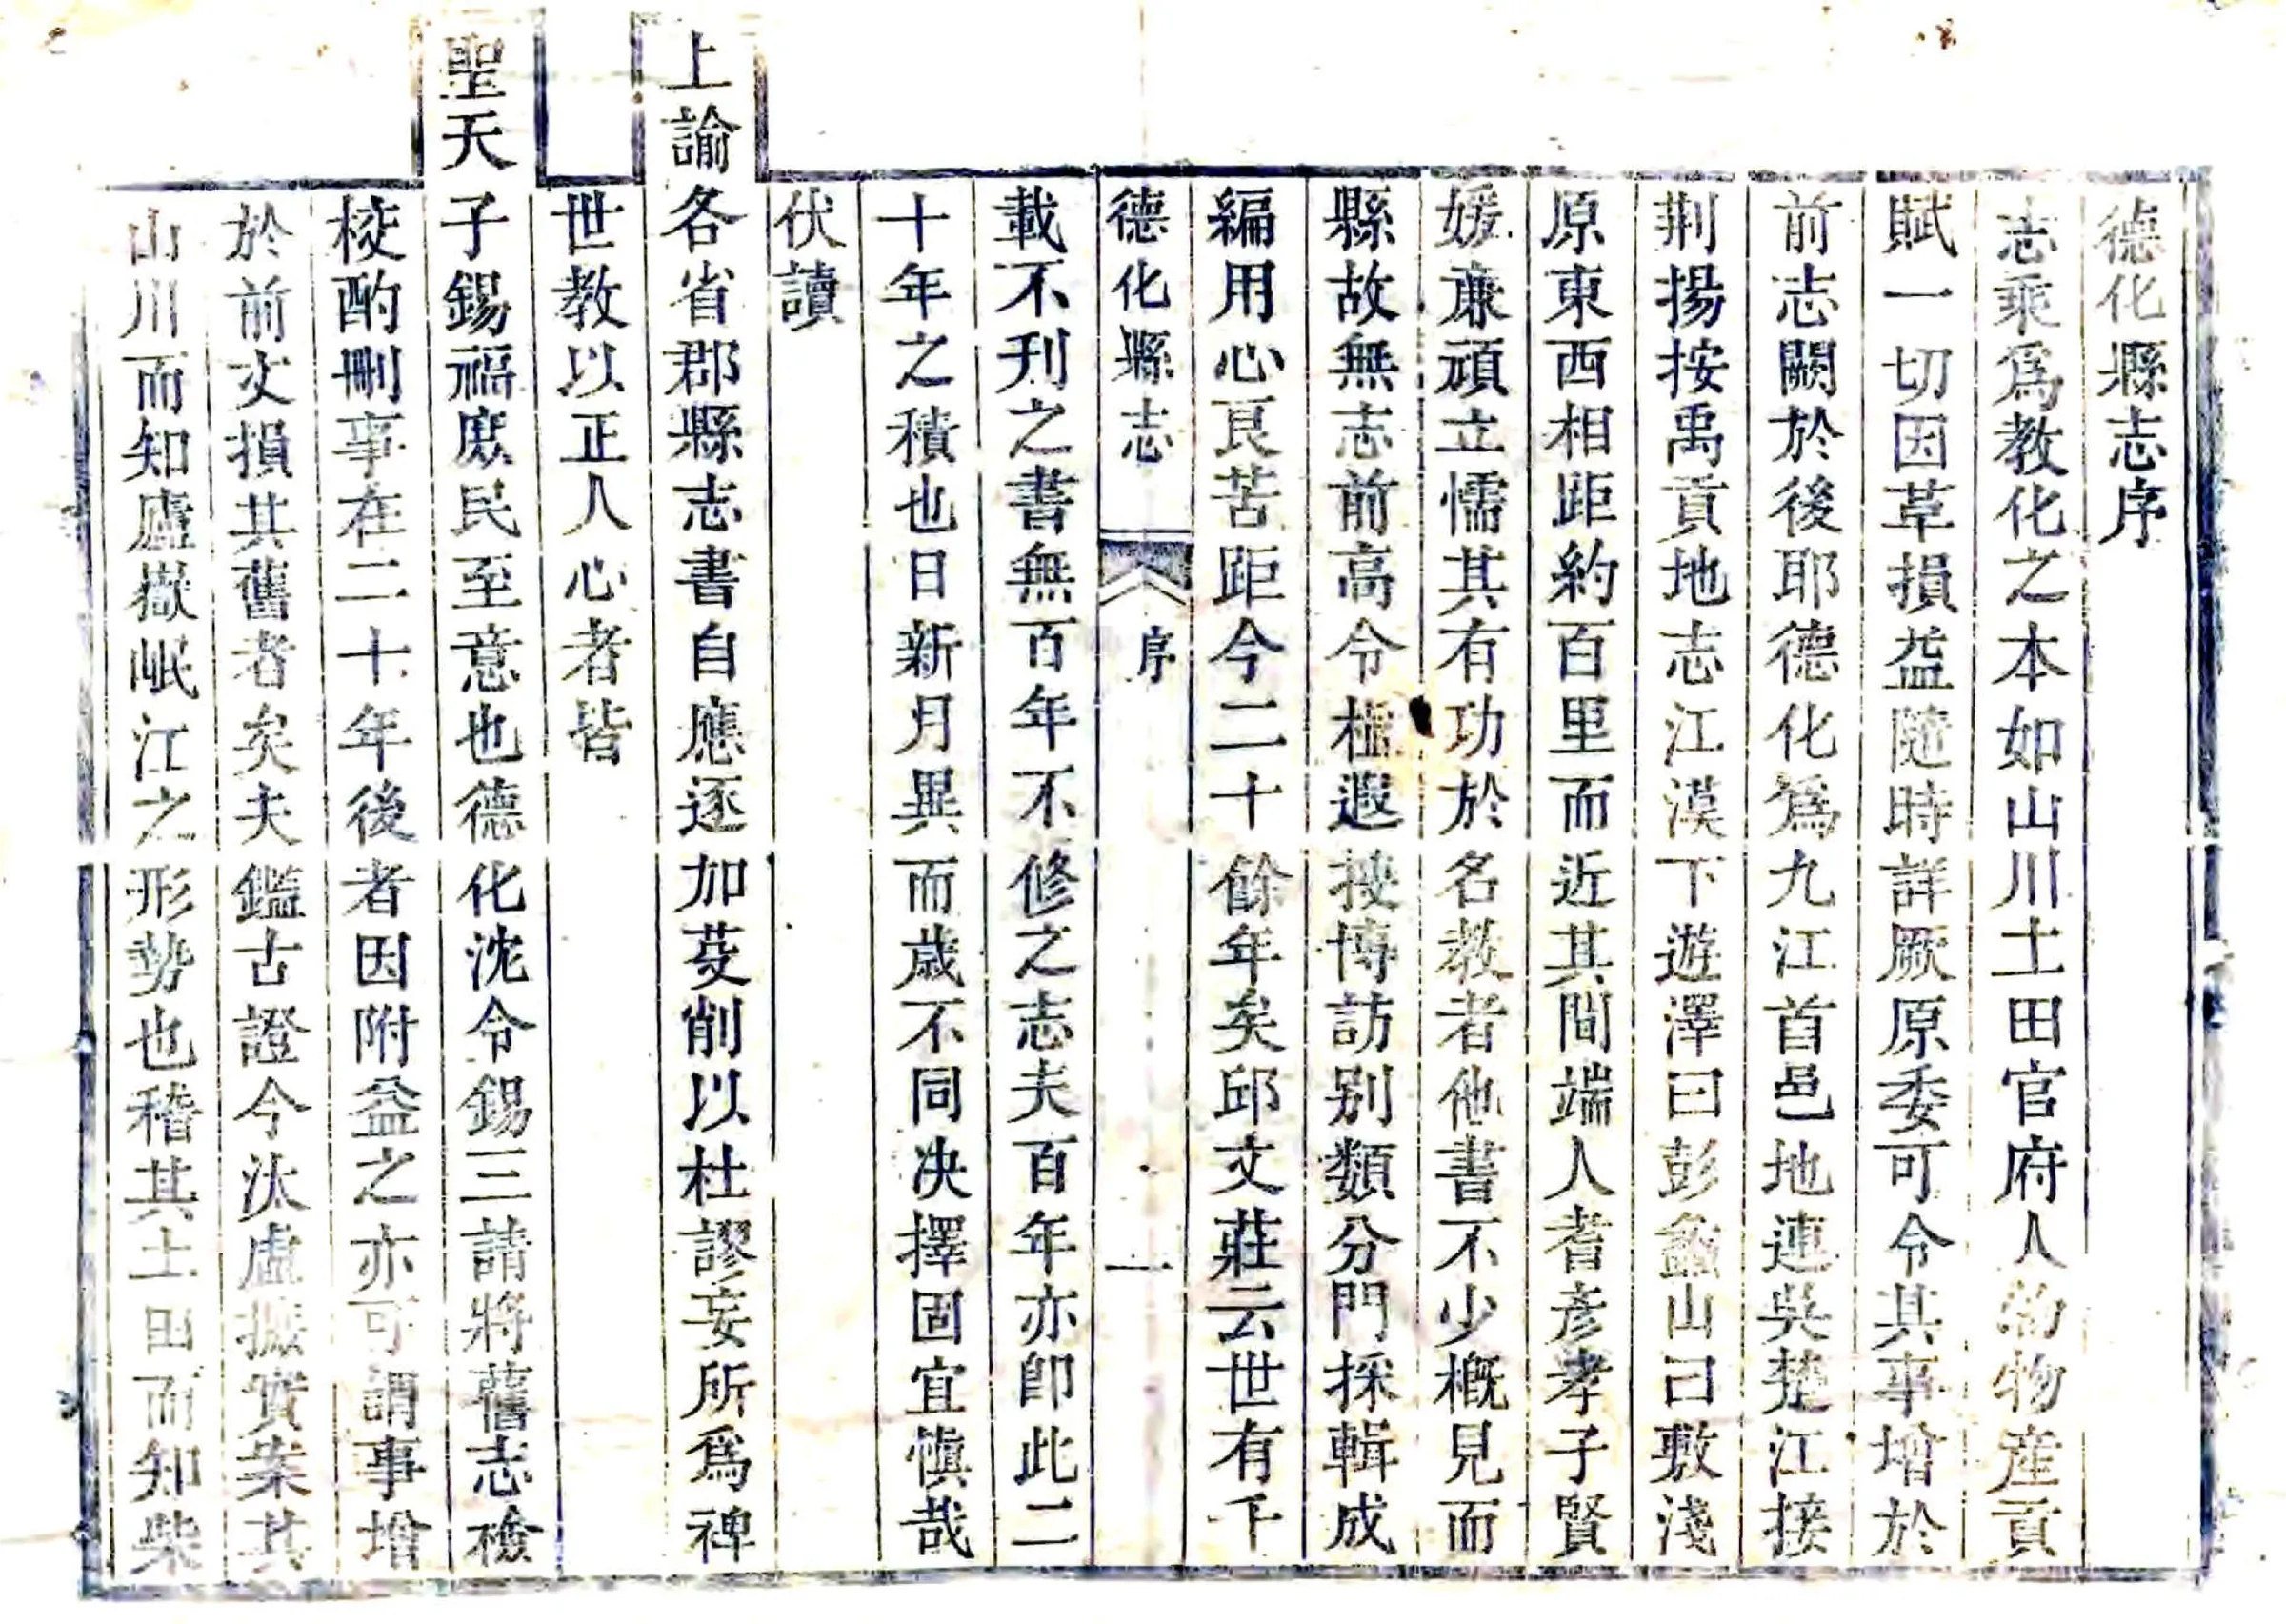 德化縣志序
志乘爲教化之本如山川土田官府人物物産貢
賦一切因革損益隨時詳厥原委可令其事增於
前志闕於後耶德化爲九江首邑地連吳楚江接
荆揚按禹貢地志江漢下遊澤曰彭蠡山曰敷淺
原東西相距約百里而近其間端人耆彥孝子賢
媛廉頑立懦其有功於名教者他書不少概見而
縣故無志前高令植遐搜博訪别類分門採輯成
編用心艮苦距今二十餘年矣邱文莊云世有千
德化縣志 序 一
載不刊之書無百年不修之志夫百年亦卽此二
十年之積也日新月異而歲不同决擇固宜愼哉
伏讀
上諭各省郡縣志書自應逐加芟削以杜謬妄所爲裨
世教以正人心者皆
聖天子錫福庶民至意也德化沈令錫三請將舊志檢
校酌刪事在二十年後者因附益之亦可謂事增
於前文損其舊者矣夫鑑古證今汰虛摭實案其
山川而知廬嶽岷江之形勢也稽其土田而知柴